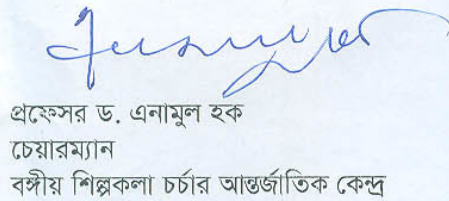 প্রফেসর ড. এনামুল হক
চেয়ারম্যান
বঙ্গীয় শিল্পকলা চর্চার আন্তর্জাতিক কেন্দ্র